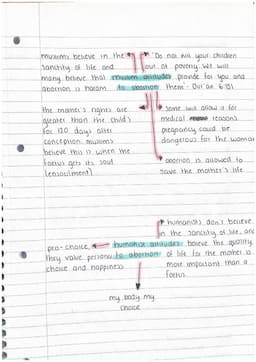 muslims believe in the
sanctity of life and
many believe that
abortion is haram.
"Do not kill your children
out of poverty. We will
provide for you and
them". Qur'an 6:151
muslim attitudes
to abortion
the mother's rights are
greater than the child's
for 120 days after
conception. muslims
believe this is when the
foetus gets its soul
(ensoulment)
some will allow it for
medical reasons
pregnancy could be
dangerous for the woman
abortion is allowed to
save the mother's life
humanists don't believe
in the sanctity of life, and
believe the quality
of life for the mother is
more important than a
foetus.
pro-choice,
they value personal
choice and happiness
humanist attitudes
to abortion
my body my
choice